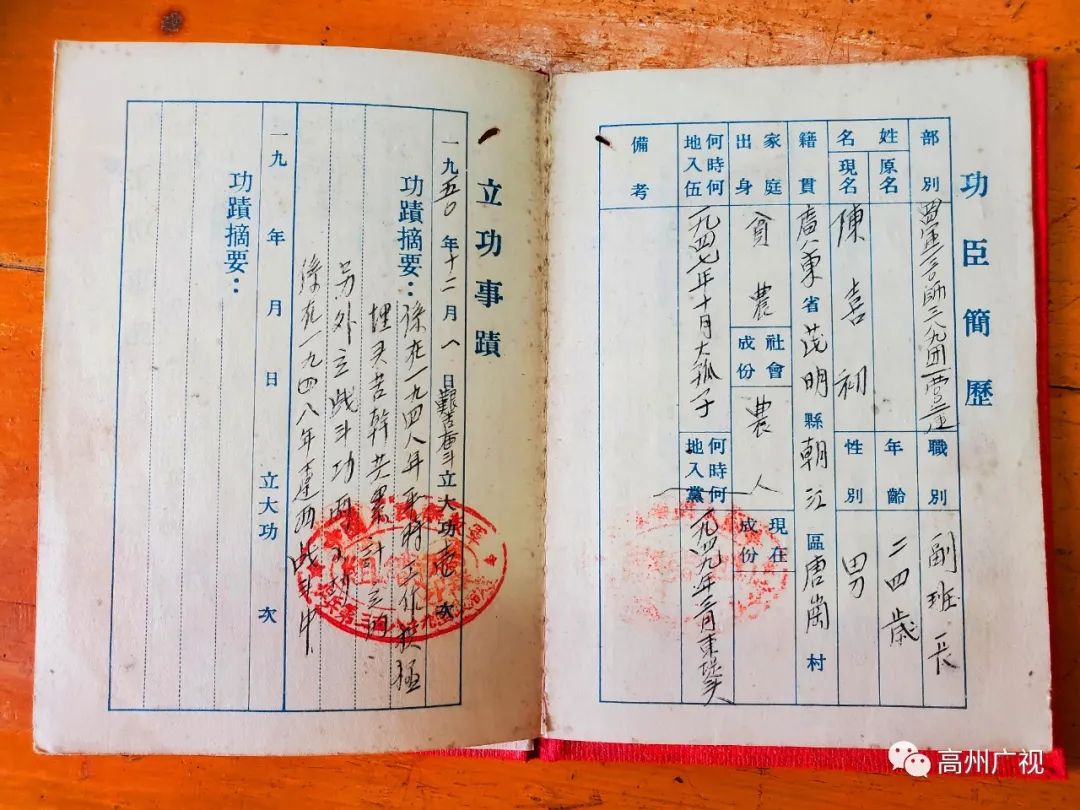 功臣簡歷
部別 職別 副班長
姓名 原名 年齡 二四歲
現名 陳喜初 性別 男
籍貫 廣東省茂明縣朝江區唐崗村
家庭出身 貧農 社會成份 農人 現在成份
何時何地入伍 一九四七年十月大孤子 何時何地入黨
備考
立功事蹟
一九五〇年十二月八日艱苦奮斗立大功壹次
功蹟摘要：係在一九四八年平時工作積極
埋头苦幹共累計三
另外立战斗功两小
係在一九四八年遼西战斗中
一九 年 月 日 立大功 次
功蹟摘要：
高州广视